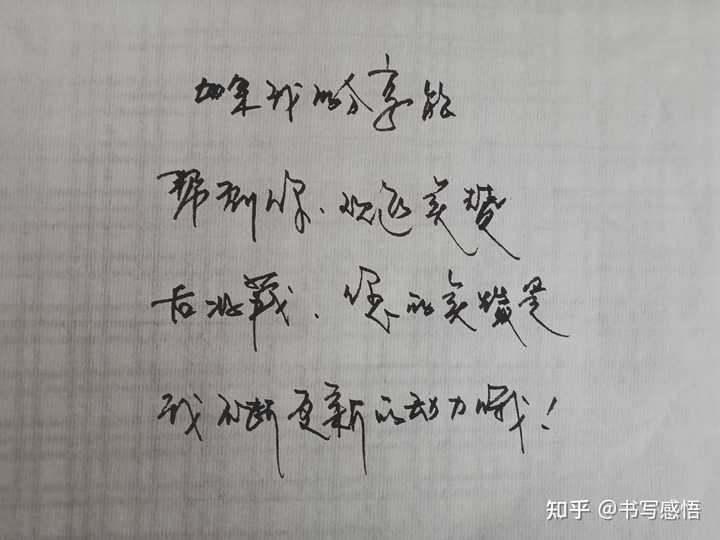 如果我的分享能
帮到你、欢迎关赞
收藏、您的关赞是
我不断更新的动力哦!
知乎 @书写感悟